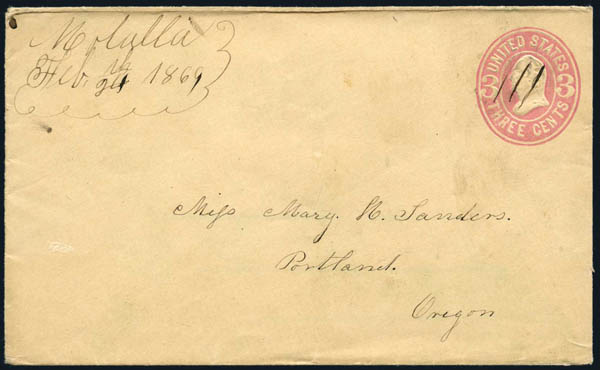 Molalla
Feb. 24 1869
UNITED STATES
3 3
THREE CENTS
Miss Mary. H. Sanders.
Portland.
Oregon